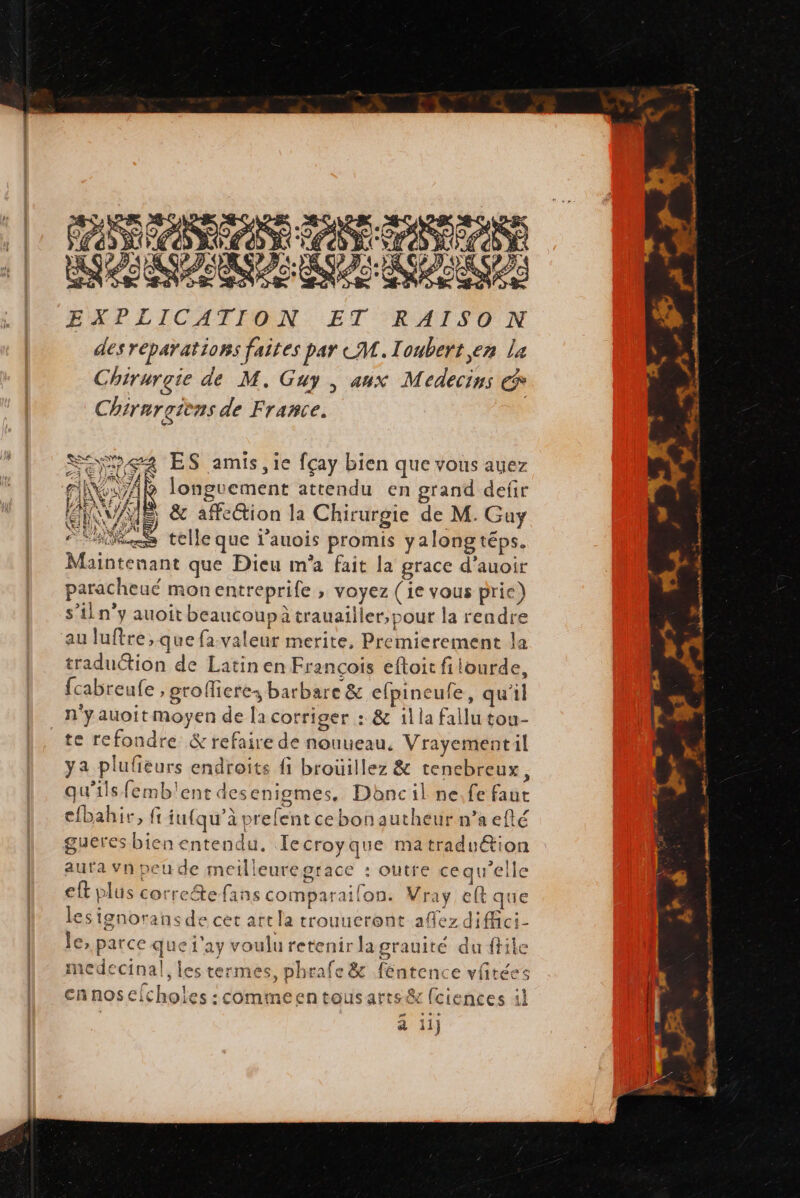 EXPLICATION ET RAISON
des reparations faites par M. Ioubert, en la
Chirurgie de M. Guy, aux Medecins &
Chirurgiens de France.
ES amis, ie ſçay bien que vous auez
longuement attendu en grand deſir
& affection la Chirurgie de M. Guy
telle que i'auois promis y a long tẽps.
Maintenant que Dieu m'a fait la grace d'auoir
paracheué mon entrepriſe, voyez (ie vous prie)
s'il n'y auoit beaucoup à trauailler, pour la rendre
au luſtre, que ſa valeur merite. Premierement la
traduction de Latin en François eſtoit ſi lourde,
ſcabreuſe, groſſiere, barbare & eſpineuſe, qu'il
n'y auoit moyen de la corriger : & il la fallu tou-
te refondre & refaire de nouueau. Vrayement il
y a pluſieurs endroits ſi broüillez & tenebreux,
qu'ils ſemblent des enigmes. Donc il ne ſe faut
eſbahir, ſi iuſqu'à preſent ce bon autheur n'a eſté
gueres bien entendu. Ie croy que ma traduction
aura vn peu de meilleure grace : outre ce qu'elle
eſt plus correcte ſans comparaiſon. Vray eſt que
les ignorans de cet art la trouueront aſſez diffici-
le, parce que i'ay voulu retenir la grauité du ſtile
medecinal, les termes, phraſe & ſentence vſitées
en nos eſcholes : comme en tous arts & ſciences il
ã iij